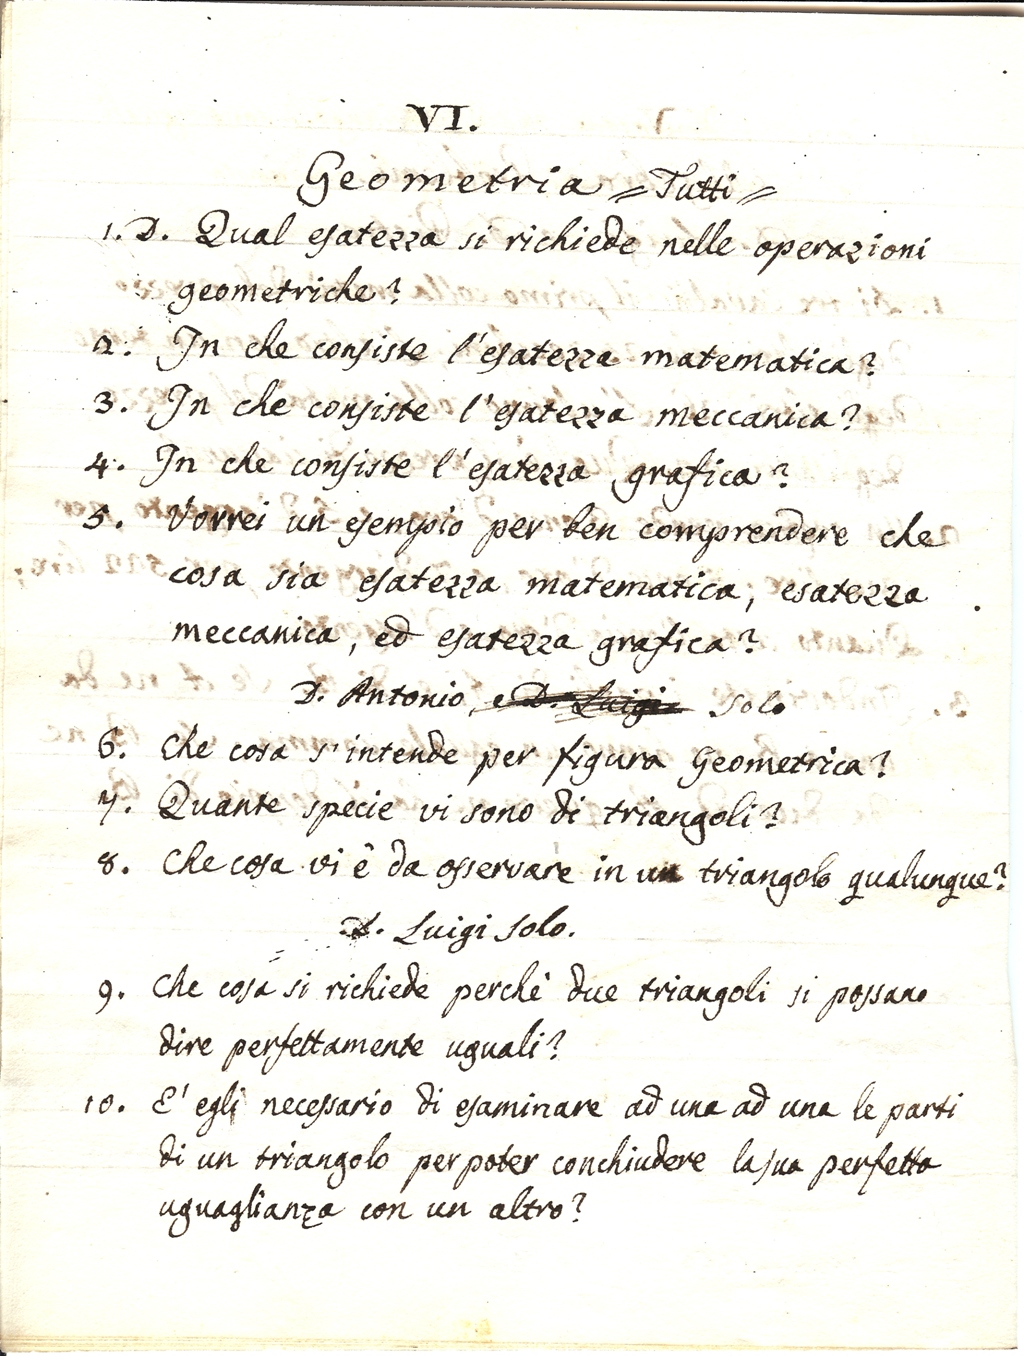 VI.
Geometria = Tutti =
1. D. Qual esatezza si richiede nelle operazioni
geometriche?
2. In che consiste l'esatezza matematica?
3. In che consiste l'esatezza meccanica?
4. In che consiste l'esatezza grafica?
5. Vorrei un esempio per ben comprendere che
cosa sia esatezza matematica, esatezza
meccanica, ed esatezza grafica?
D. Antonio, e D. Luigi solo
6. Che cosa s'intende per figura Geometrica?
7. Quante specie vi sono di triangoli?
8. Che cosa vi è da osservare in un triangolo qualunque?
D. Luigi solo.
9. Che cosa si richiede perchè due triangoli si possano
dire perfettamente uguali?
10. E' egli necessario di esaminare ad una ad una le parti
di un triangolo per poter conchiudere la sua perfetta
uguaglianza con un altro?